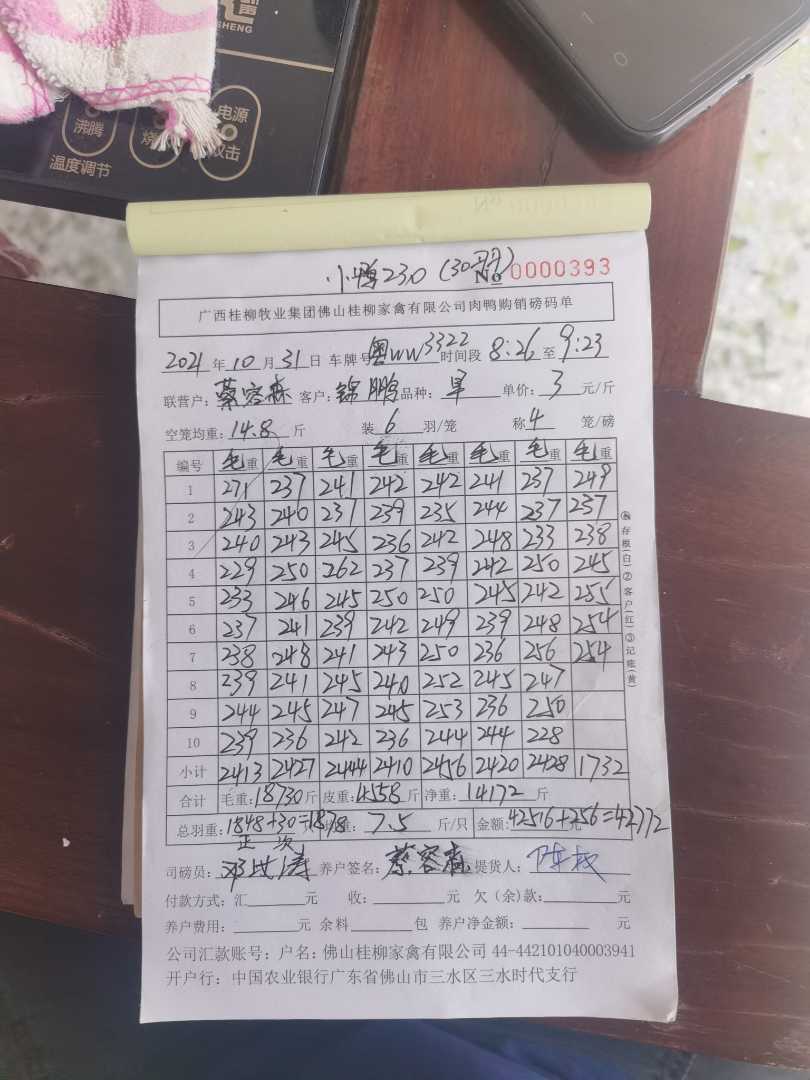 SHENG
沸腾
电源
攻击
温度调节
小鸭230 (30羽)
No 0000393
广西桂柳牧业集团佛山桂柳家禽有限公司肉鸭购销磅码单
2021年10月31日 车牌号粤WW3322时间段8:26至9:23
联营户:蔡容森 客户:锦鹏品种:旱 单价:3元/斤
空笼均重:14.8斤 装6羽/笼 称4笼/磅
编号 毛重 毛重 毛重 毛重 毛重 毛重 毛重 毛重
1 271 237 241 242 242 241 237 249
2 243 240 237 239 235 244 237 237
3 240 243 245 236 242 248 233 238
4 229 250 262 237 239 242 250 245
5 233 246 245 250 250 245 242 255
6 237 241 239 242 249 239 248 254
7 238 248 241 243 250 236 256 254
8 239 241 245 240 252 245 247
9 244 245 247 245 253 236 250
10 239 236 242 236 244 244 228
小计 2413 2427 2444 2410 2456 2420 2428 1732
合计 毛重:18730斤 皮重:4558斤 净重:14172斤
总羽重:1848+30=1878 重:7.5斤/只 金额:42516+256=42772
正 次
司磅员: 养户签名:蔡容森 提货人:陈权
付款方式:汇 元 收: 元 欠(余)款: 元
养户费用: 元 余料 包 养户净金额: 元
公司汇款账号:户名:佛山桂柳家禽有限公司 44-442101040003941
开户行:中国农业银行广东省佛山市三水区三水时代支行
存根(白)②客户(红)③记账(黄)